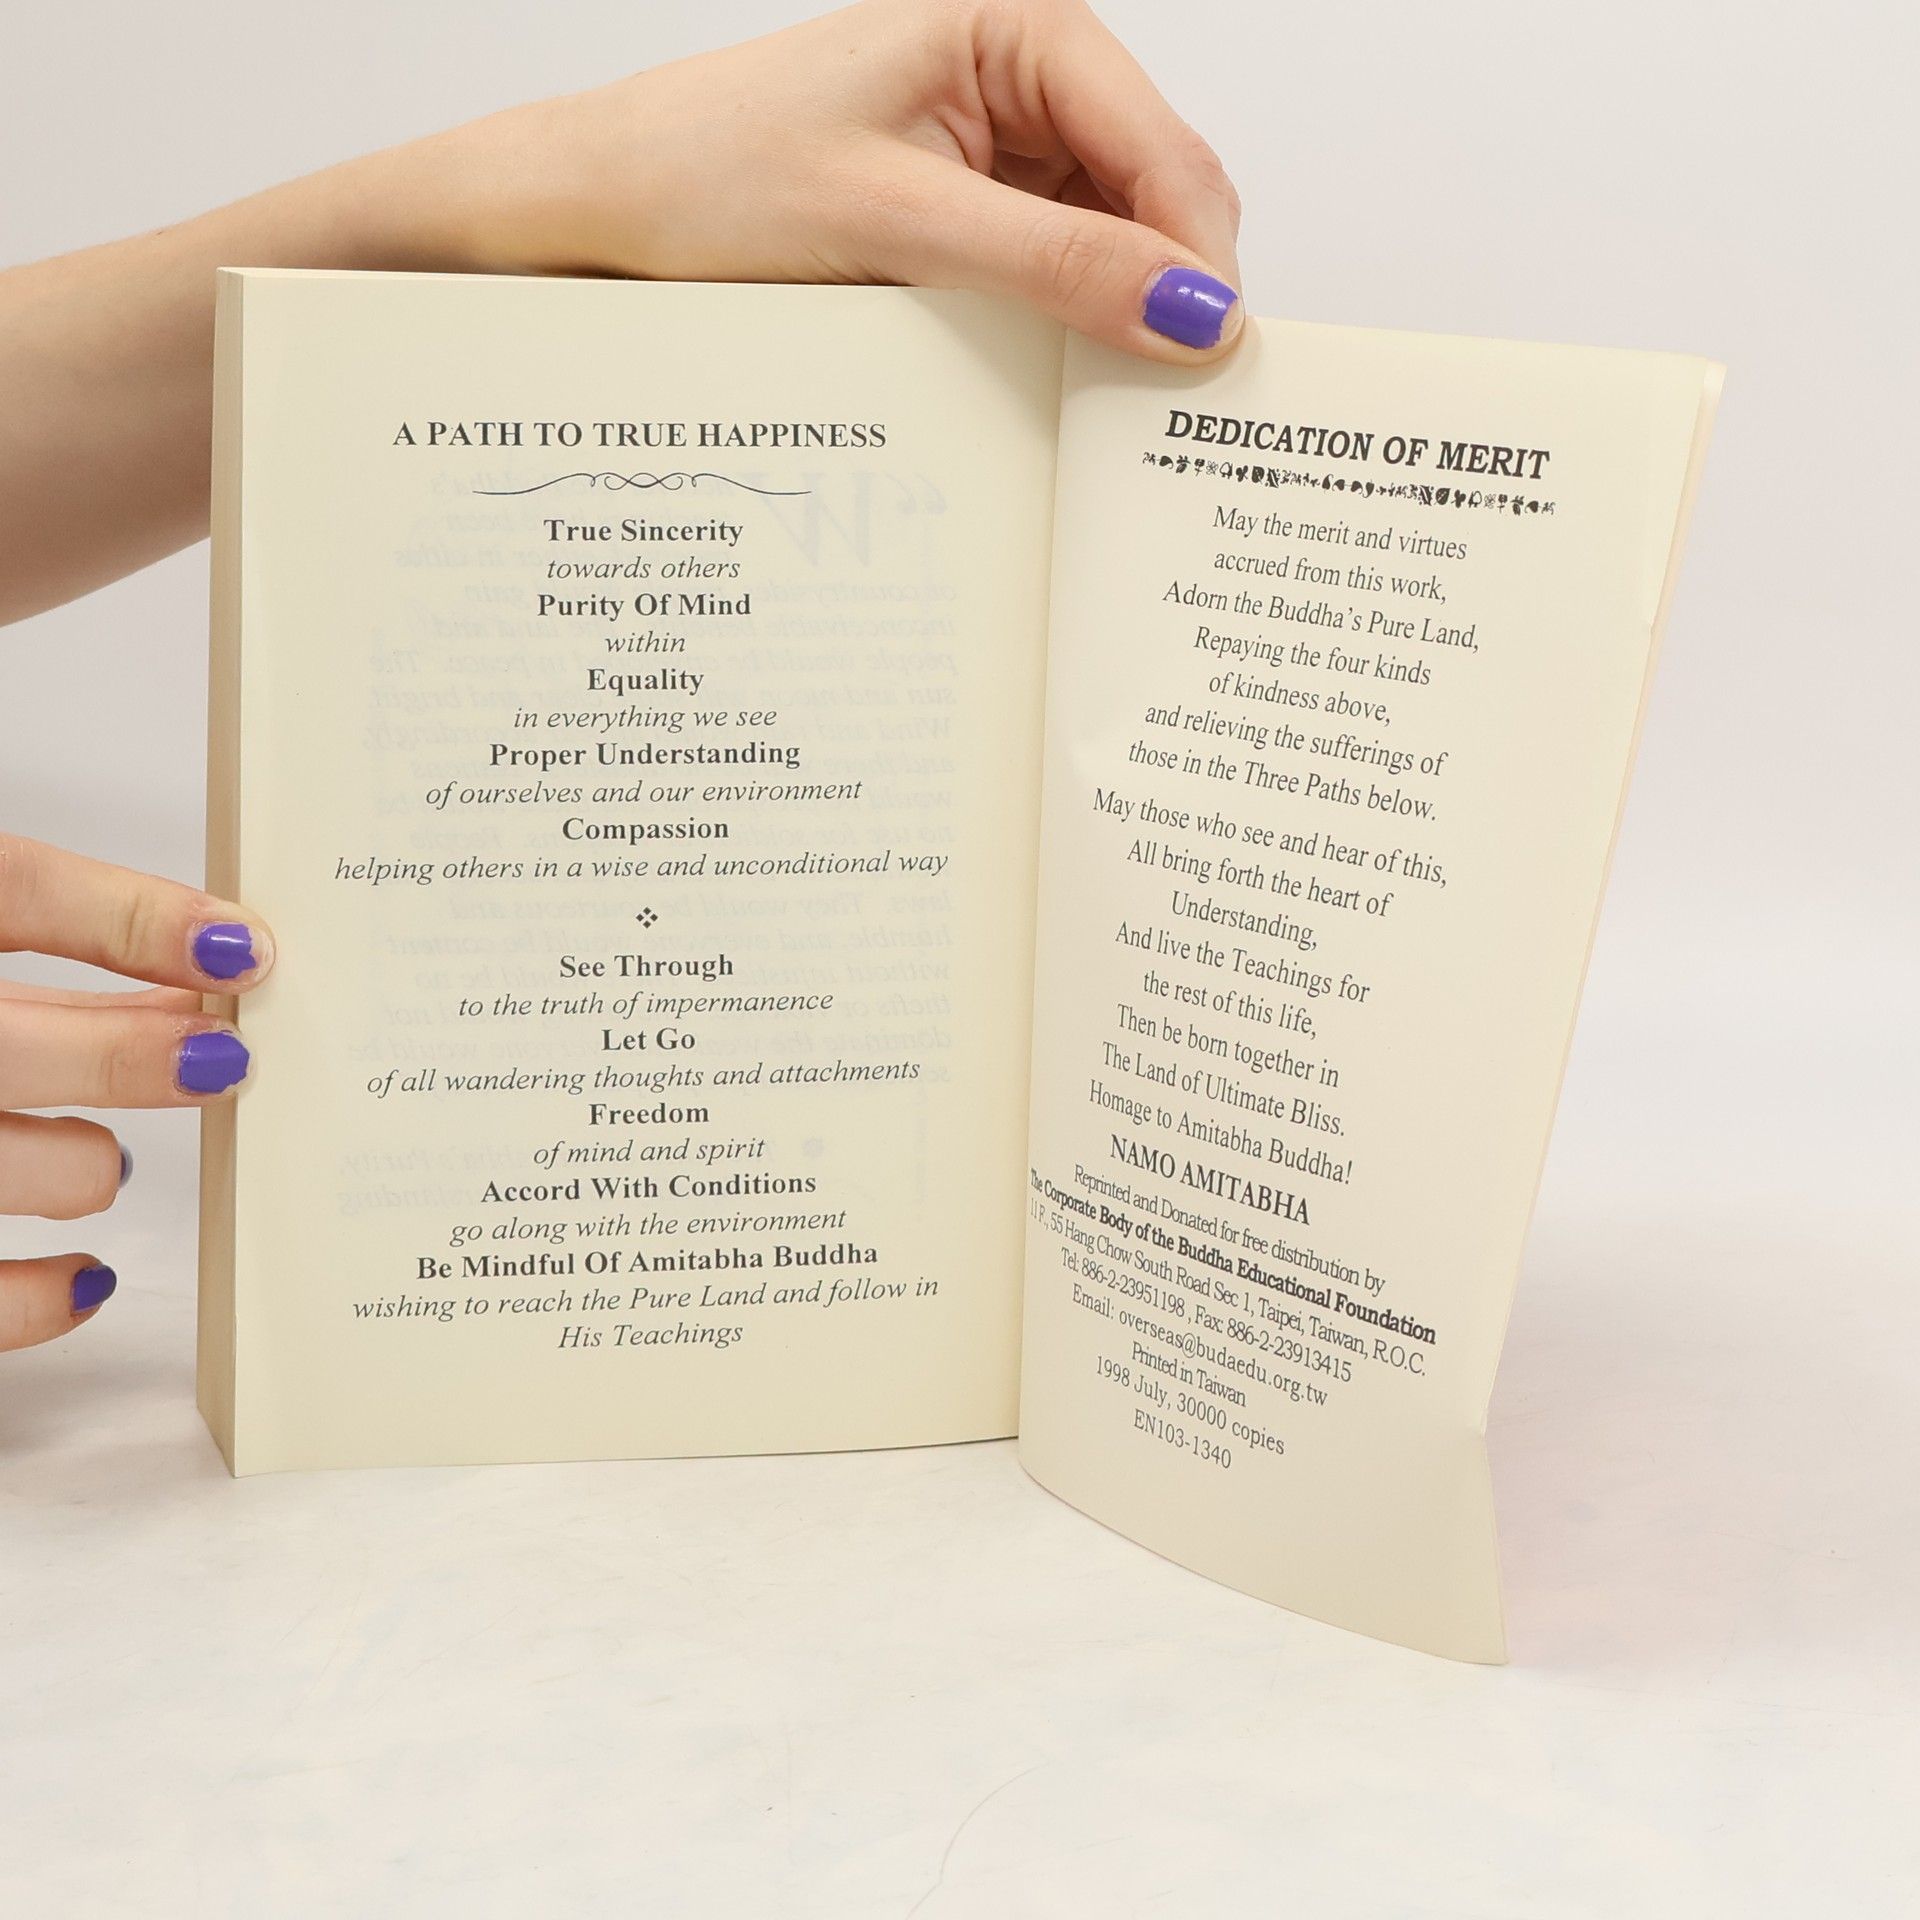 A PATH TO TRUE HAPPINESS
True Sincerity
towards others
Purity Of Mind
within
Equality
in everything we see
Proper Understanding
of ourselves and our environment
Compassion
helping others in a wise and unconditional way
See Through
to the truth of impermanence
Let Go
of all wandering thoughts and attachments
Freedom
of mind and spirit
Accord With Conditions
go along with the environment
Be Mindful Of Amitabha Buddha
wishing to reach the Pure Land and follow in
His Teachings
DEDICATION OF MERIT
May the merit and virtues
accrued from this work,
Adorn the Buddha's Pure Land,
Repaying the four kinds
of kindness above,
and relieving the sufferings of
those in the Three Paths below.
May those who see and hear of this,
All bring forth the heart of
Understanding,
And live the Teachings for
the rest of this life,
Then be born together in
The Land of Ultimate Bliss.
Homage to Amitabha Buddha!
NAMO AMITABHA
Reprinted and Donated for free distribution by
The Corporate Body of the Buddha Educational Foundation
11F., 55 Hang Chow South Road Sec 1, Taipei, Taiwan, R.O.C.
Tel: 886-2-23951198 , Fax: 886-2-23913415
Email: overseas@budaedu.org.tw
Printed in Taiwan
1998 July, 30000 copies
EN103-1340